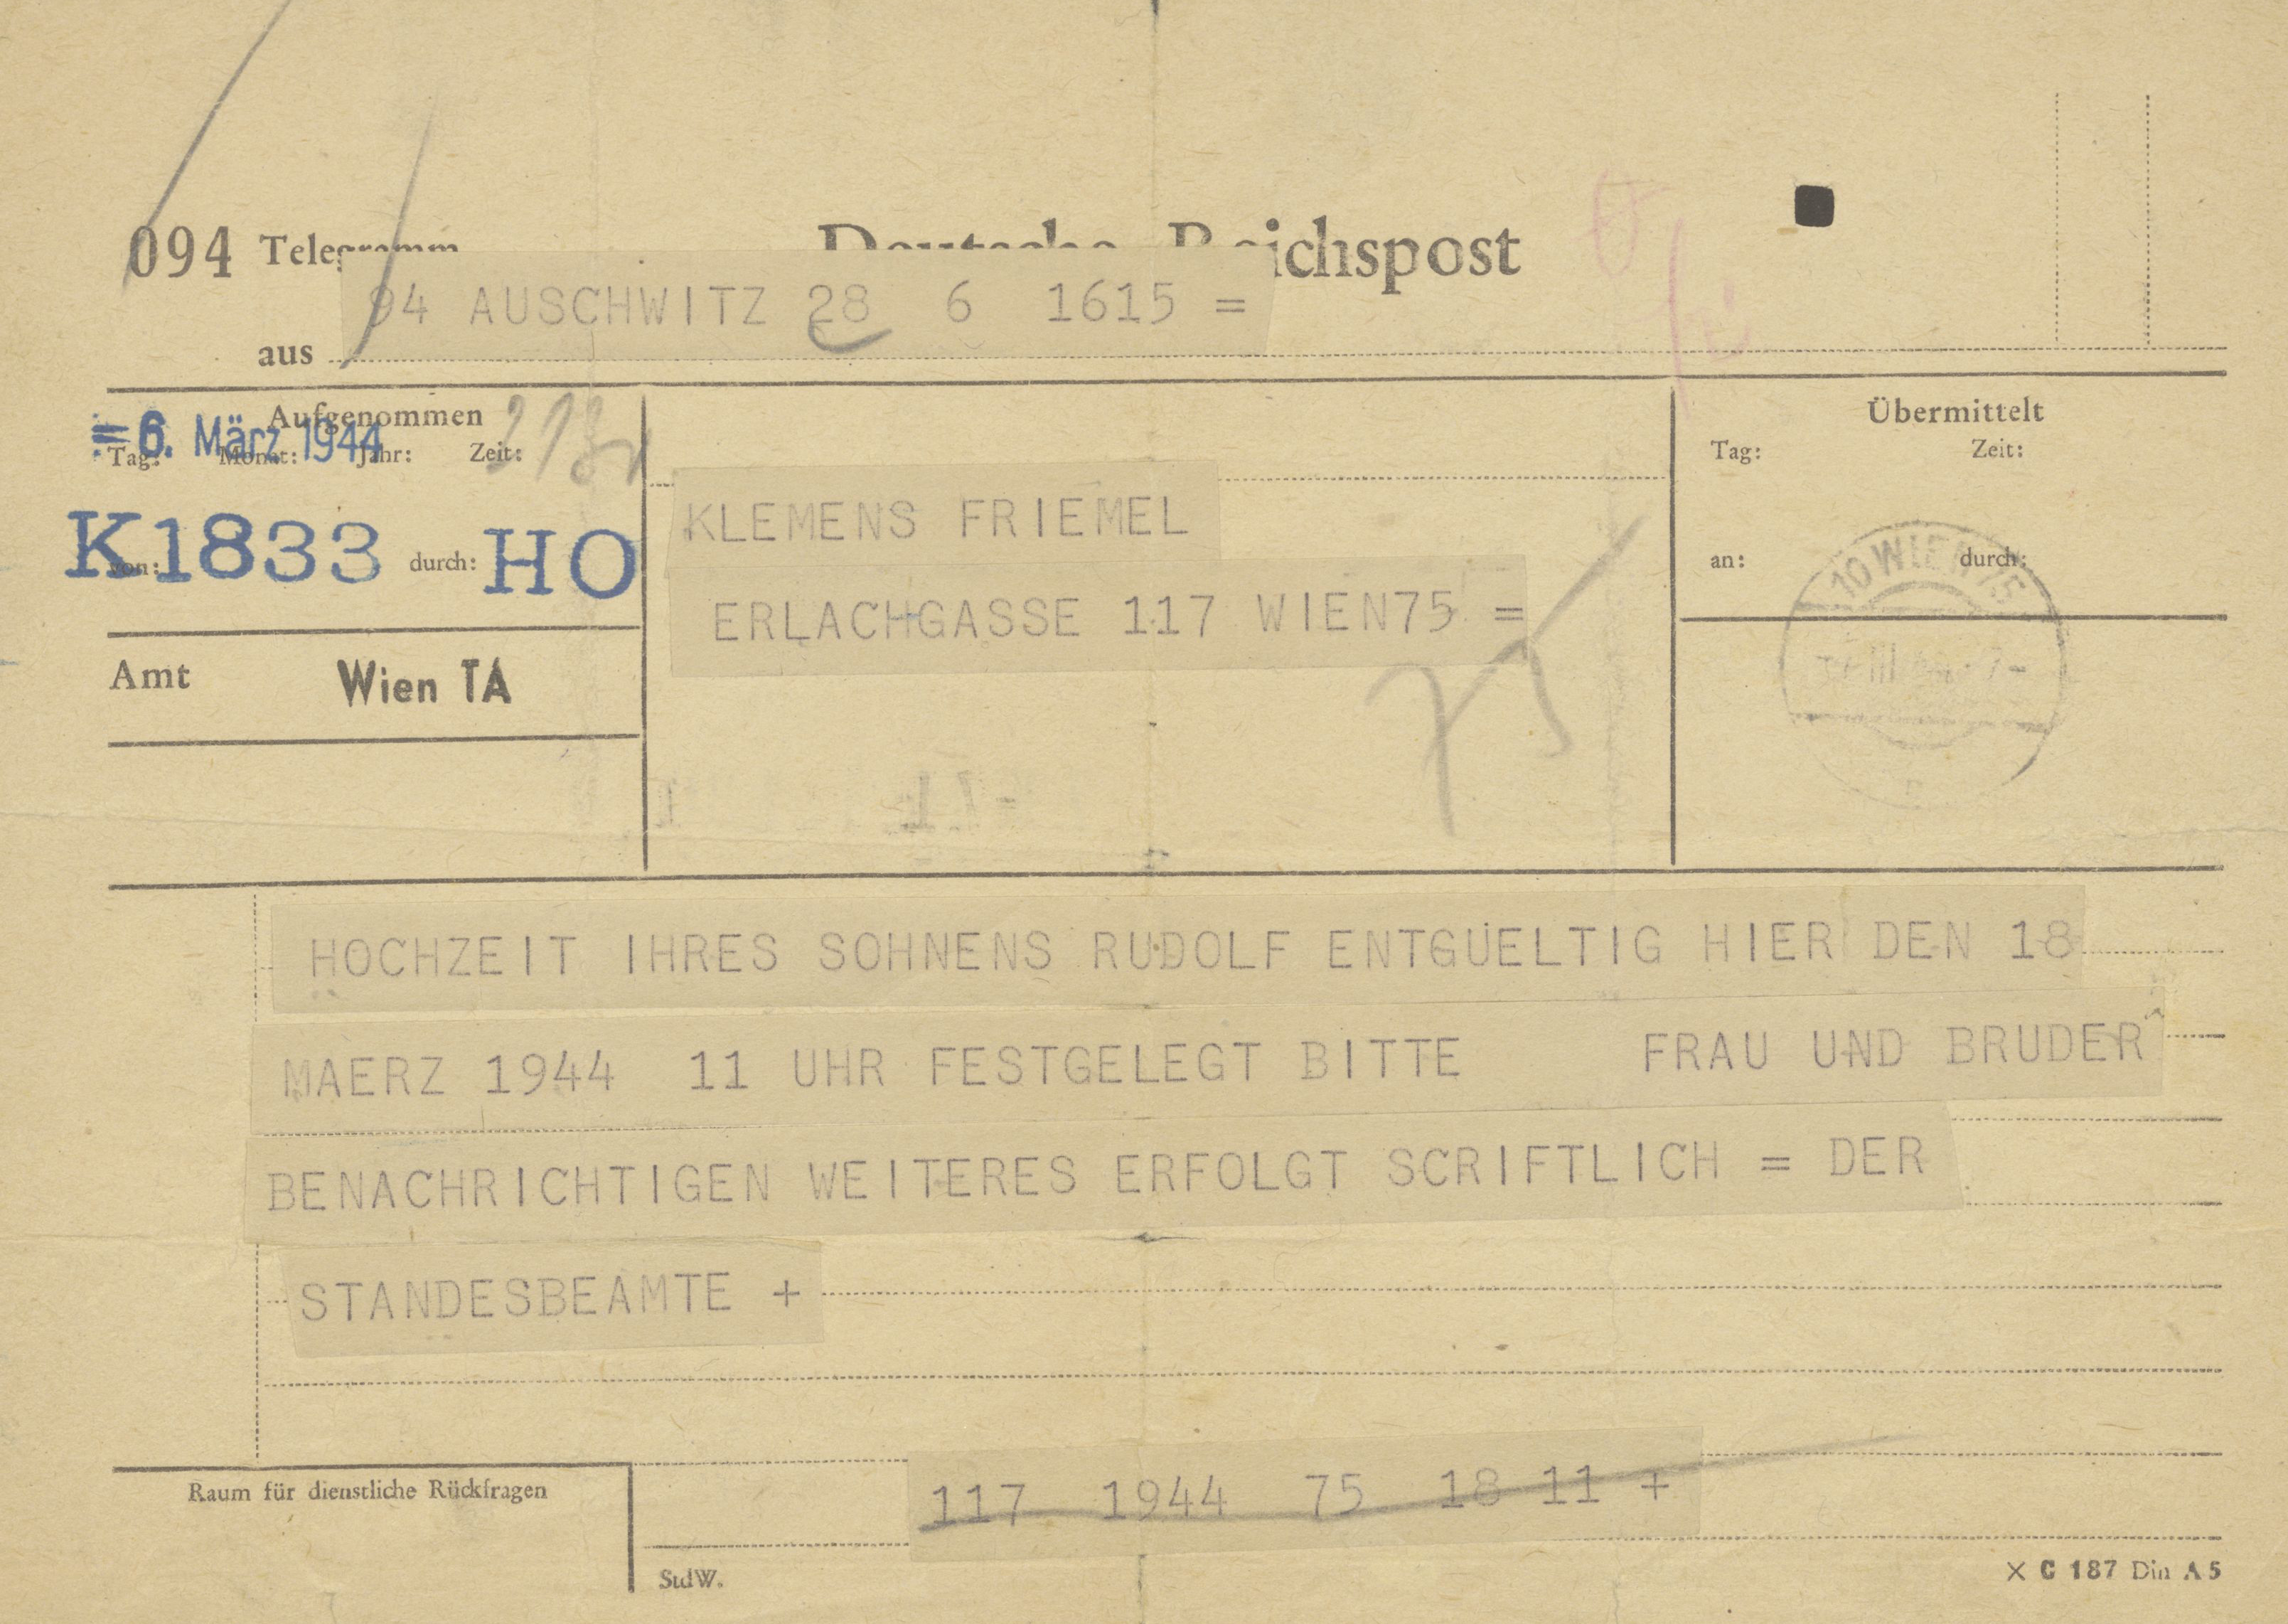 094 Telegramm Deutsche Reichspost
94 AUSCHWITZ 28 6 1615 =
aus
Aufgenommen
Tag: Monat: Jahr: Zeit:
=6. März 1944
von: K1833 durch: HO
Amt Wien TA
KLEMENS FRIEMEL
ERLACHGASSE 117 WIEN75 =
75
Übermittelt
Tag: Zeit:
an: durch:
10 WIEN 75
HOCHZEIT IHRES SOHNENS RUDOLF ENTGUELTIG HIER DEN 18
MAERZ 1944 11 UHR FESTGELEGT BITTE FRAU UND BRUDER
BENACHRICHTIGEN WEITERES ERFOLGT SCRIFTLICH = DER
STANDESBEAMTE +
117 1944 75 18 11 +
Raum für dienstliche Rückfragen
StdW.
× C 187 Din A 5